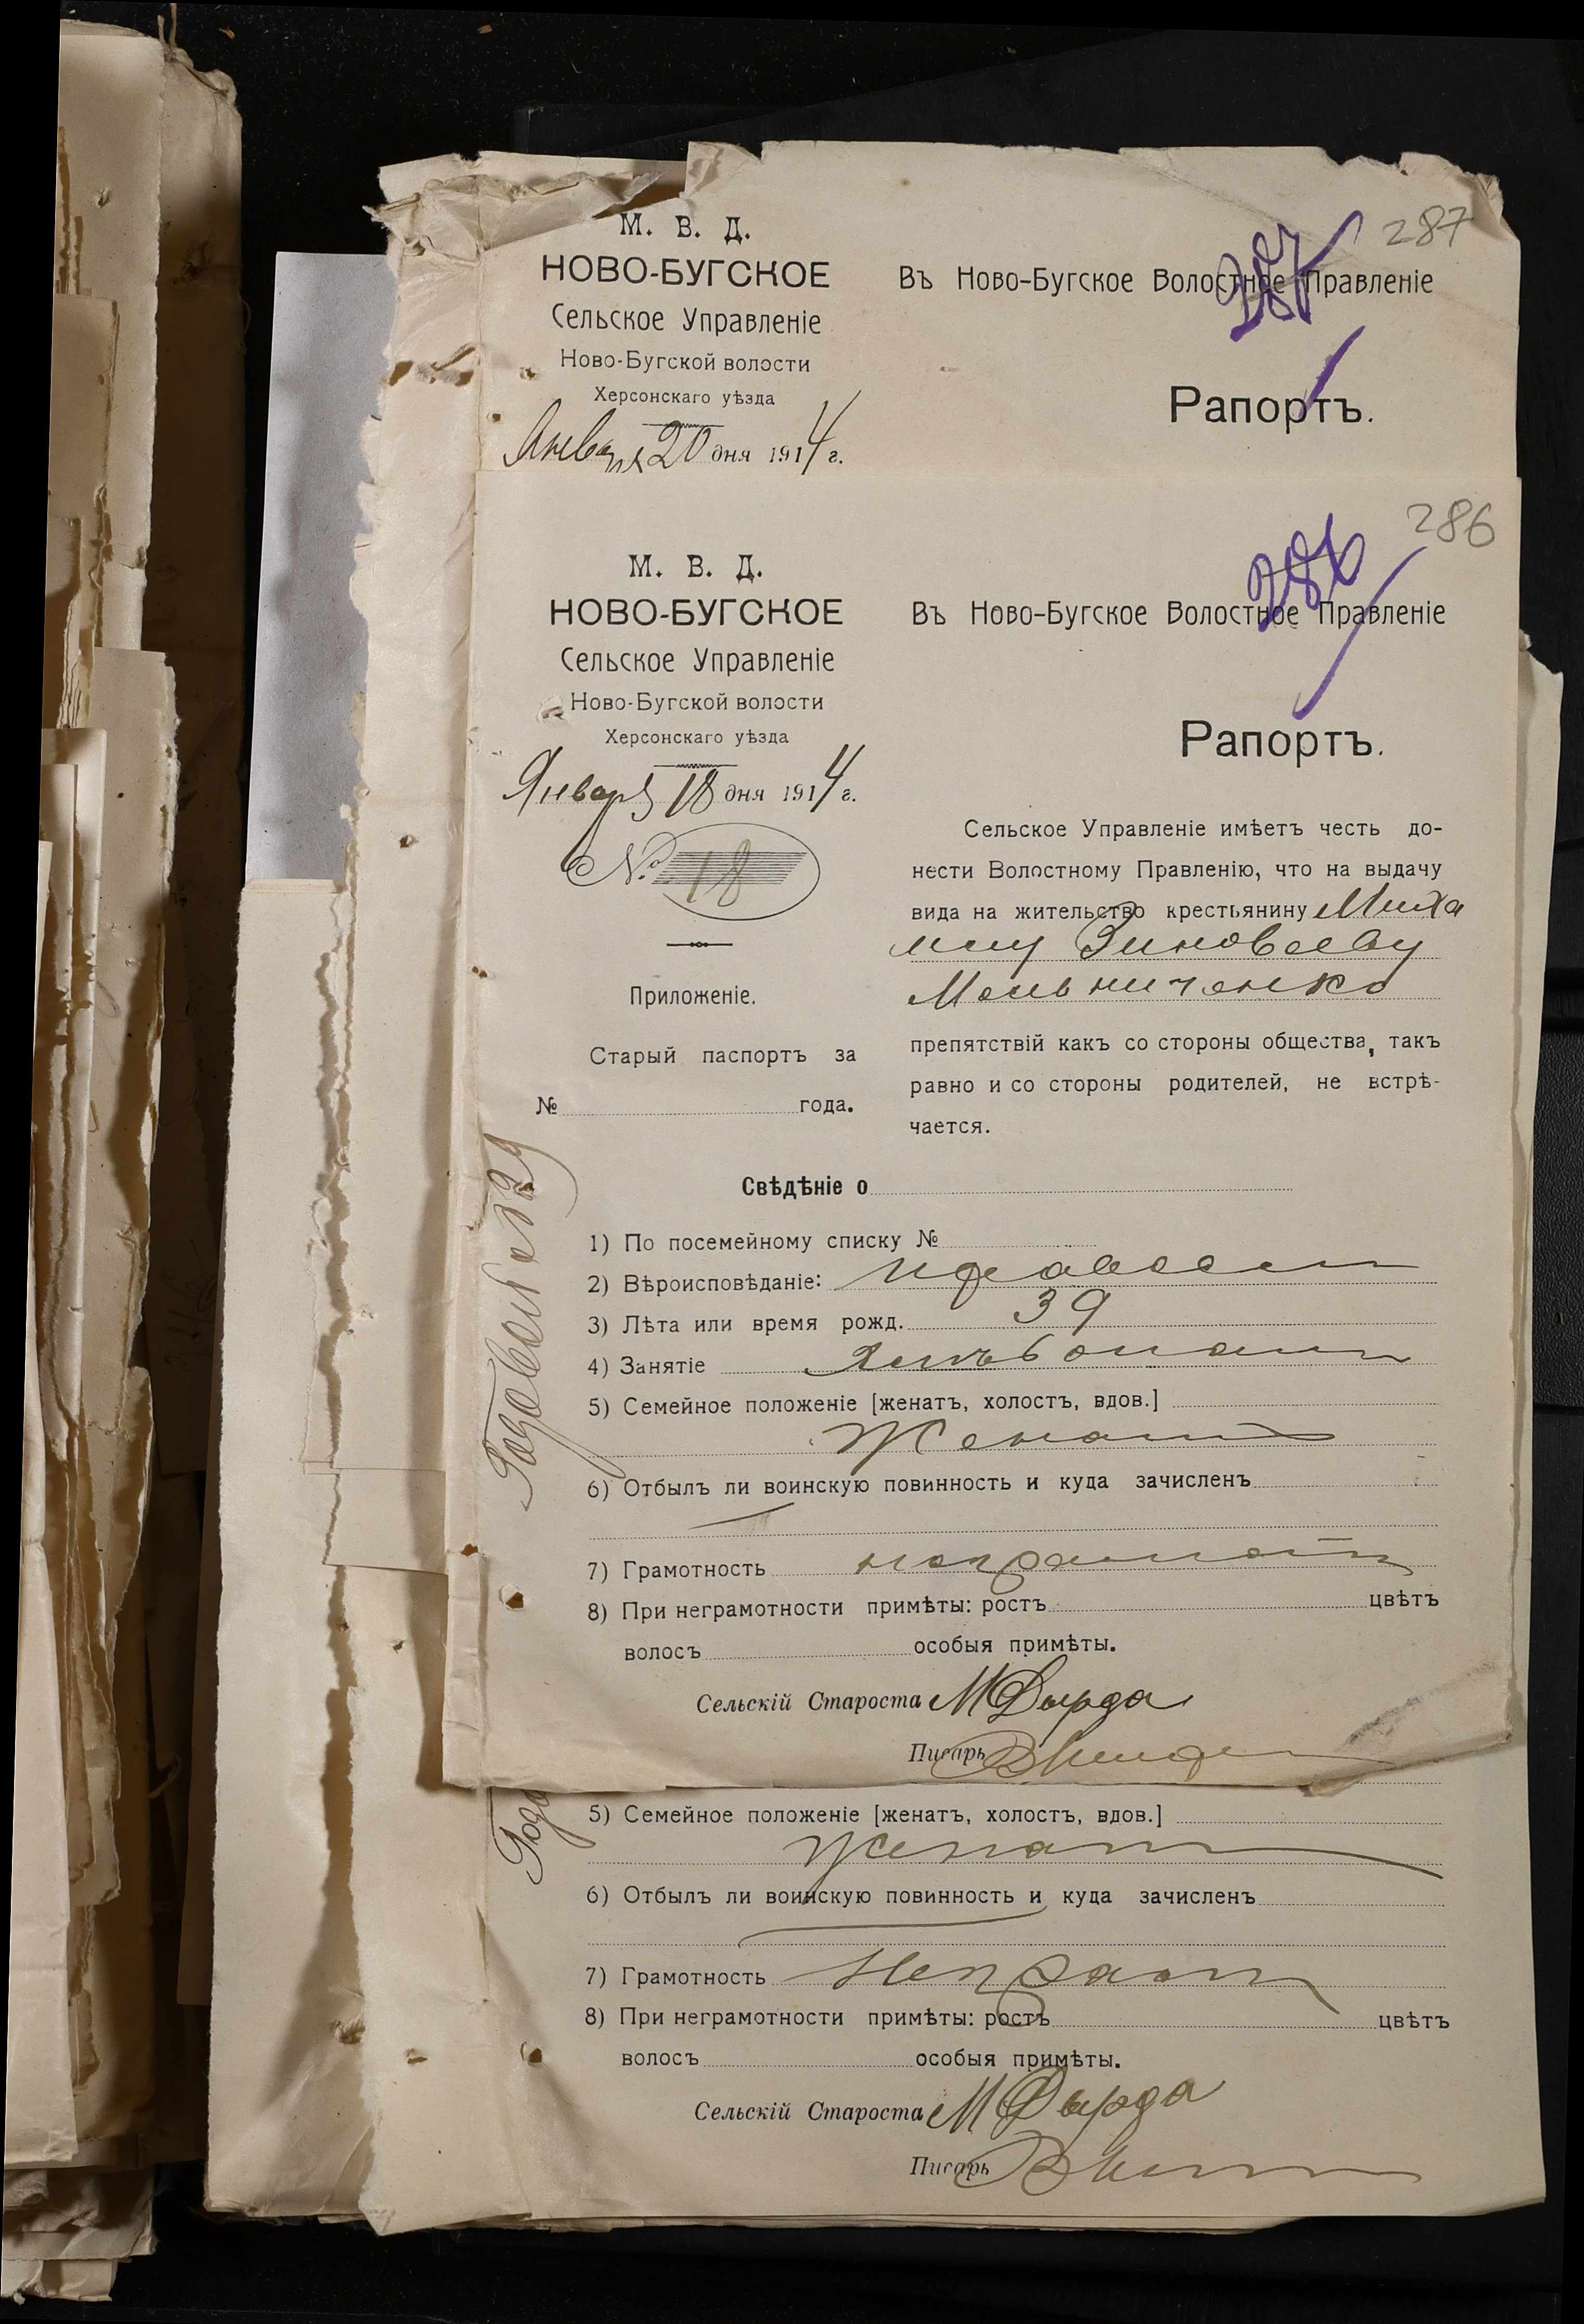 М. В. Д.
НОВО-БУГСКОЕ
Сельское Управленіе
Ново-Бугской волости
Херсонскаго уѣзда
Января 20 дня 1914 г.
287
287
Въ Ново-Бугское Волостное Правленіе
Рапортъ.
М. В. Д.
НОВО-БУГСКОЕ
Сельское Управленіе
Ново-Бугской волости
Херсонскаго уѣзда
Января 18 дня 1914 г.
№ 18
Приложеніе.
Старый паспортъ за
№ года.
286
286
Въ Ново-Бугское Волостное Правленіе
Рапортъ.
Сельское Управленіе имѣетъ честь до-
нести Волостному Правленію, что на выдачу
вида на жительство крестьянину Миха
илу Зиновьеву
Мельниченко
препятствій какъ со стороны общества, такъ
равно и со стороны родителей, не встрѣ-
чается.
Свѣдѣніе о
1) По посемейному списку №
2) Вѣроисповѣданіе: правосл
3) Лѣта или время рожд. 39
4) Занятіе хлѣбопаш
5) Семейное положеніе [женатъ, холостъ, вдов.]
Женатъ
6) Отбылъ ли воинскую повинность и куда зачисленъ
7) Грамотность неграмотн
8) При неграмотности примѣты: ростъ цвѣтъ
волосъ особыя примѣты.
Сельскій Староста М Дырда
Писарь
5) Семейное положеніе [женатъ, холостъ, вдов.]
Женат
6) Отбылъ ли воинскую повинность и куда зачисленъ
7) Грамотность Неграм
8) При неграмотности примѣты: ростъ цвѣтъ
волосъ особыя примѣты.
Сельскій Староста М Дырда
Писарь